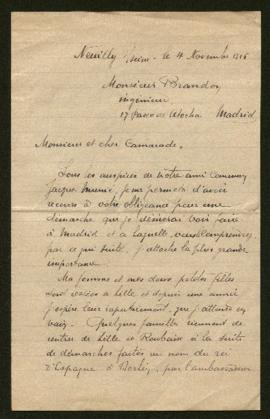 Neuilly s/Seine - le 4 Novembre 1916
Monsieur Brandon
ingénieur
17 Paseo de Atocha Madrid
Monsieur et cher Camarade,
Sous les auspices de notre ami commun
Jacques je me permets d'avoir
recours à votre obligeance pour une
démarche que je désirerais voir faire
à Madrid et à laquelle, vous comprendrez
par ce qui suit, j'attache la plus grande
importance.
Ma femme et mes deux petites filles
sont restées à Lille et depuis une année
j'espère leur rapatriement, que j'attends en
vain. Quelques familles viennent de
rentrer de Lille et Roubaix à la suite
de démarches faites au nom du roi
d'Espagne à Berlin, par l'ambassadeur